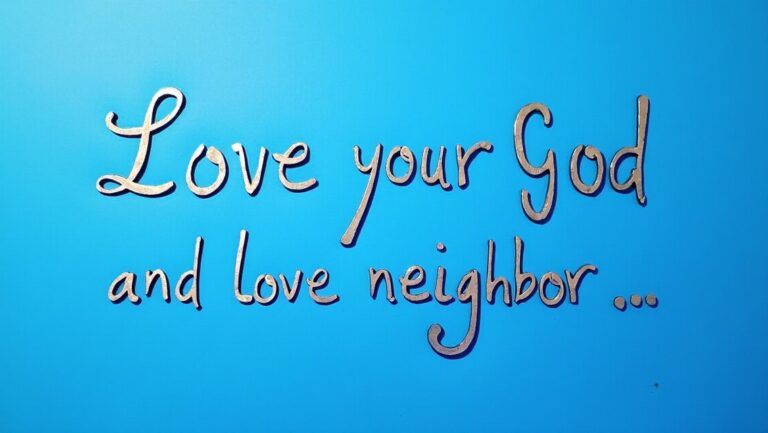 Love your God
and love neighbor ...